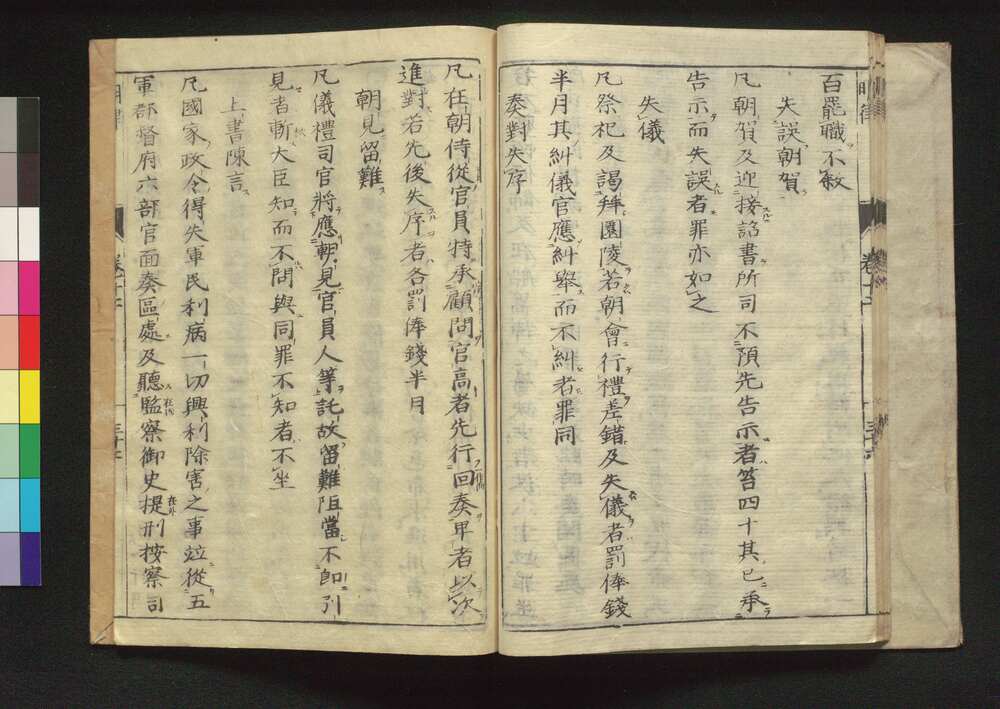 百罷職不敘
失誤朝賀
凡朝賀及迎接詔書所司不預先告示者笞四十其已承
告示而失誤者罪亦如之
失儀
凡祭祀及謁拜園陵若朝會行禮差錯及失儀者罰俸錢
半月其糾儀官應糾舉而不糾者罪同
奏對失序
凡在朝侍從官員特承顧問官高者先行回奏卑者以次
進對若先後失序者各罰俸錢半月
朝見留難
凡儀禮司官將應朝見官員人等託故留難阻當不即引
見者斬大臣知而不問與同罪不知者不坐
上書陳言
凡國家政令得失軍民利病一切興利除害之事竝從五
軍都督府六部官面奏區處及聽監察御史提刑按察司